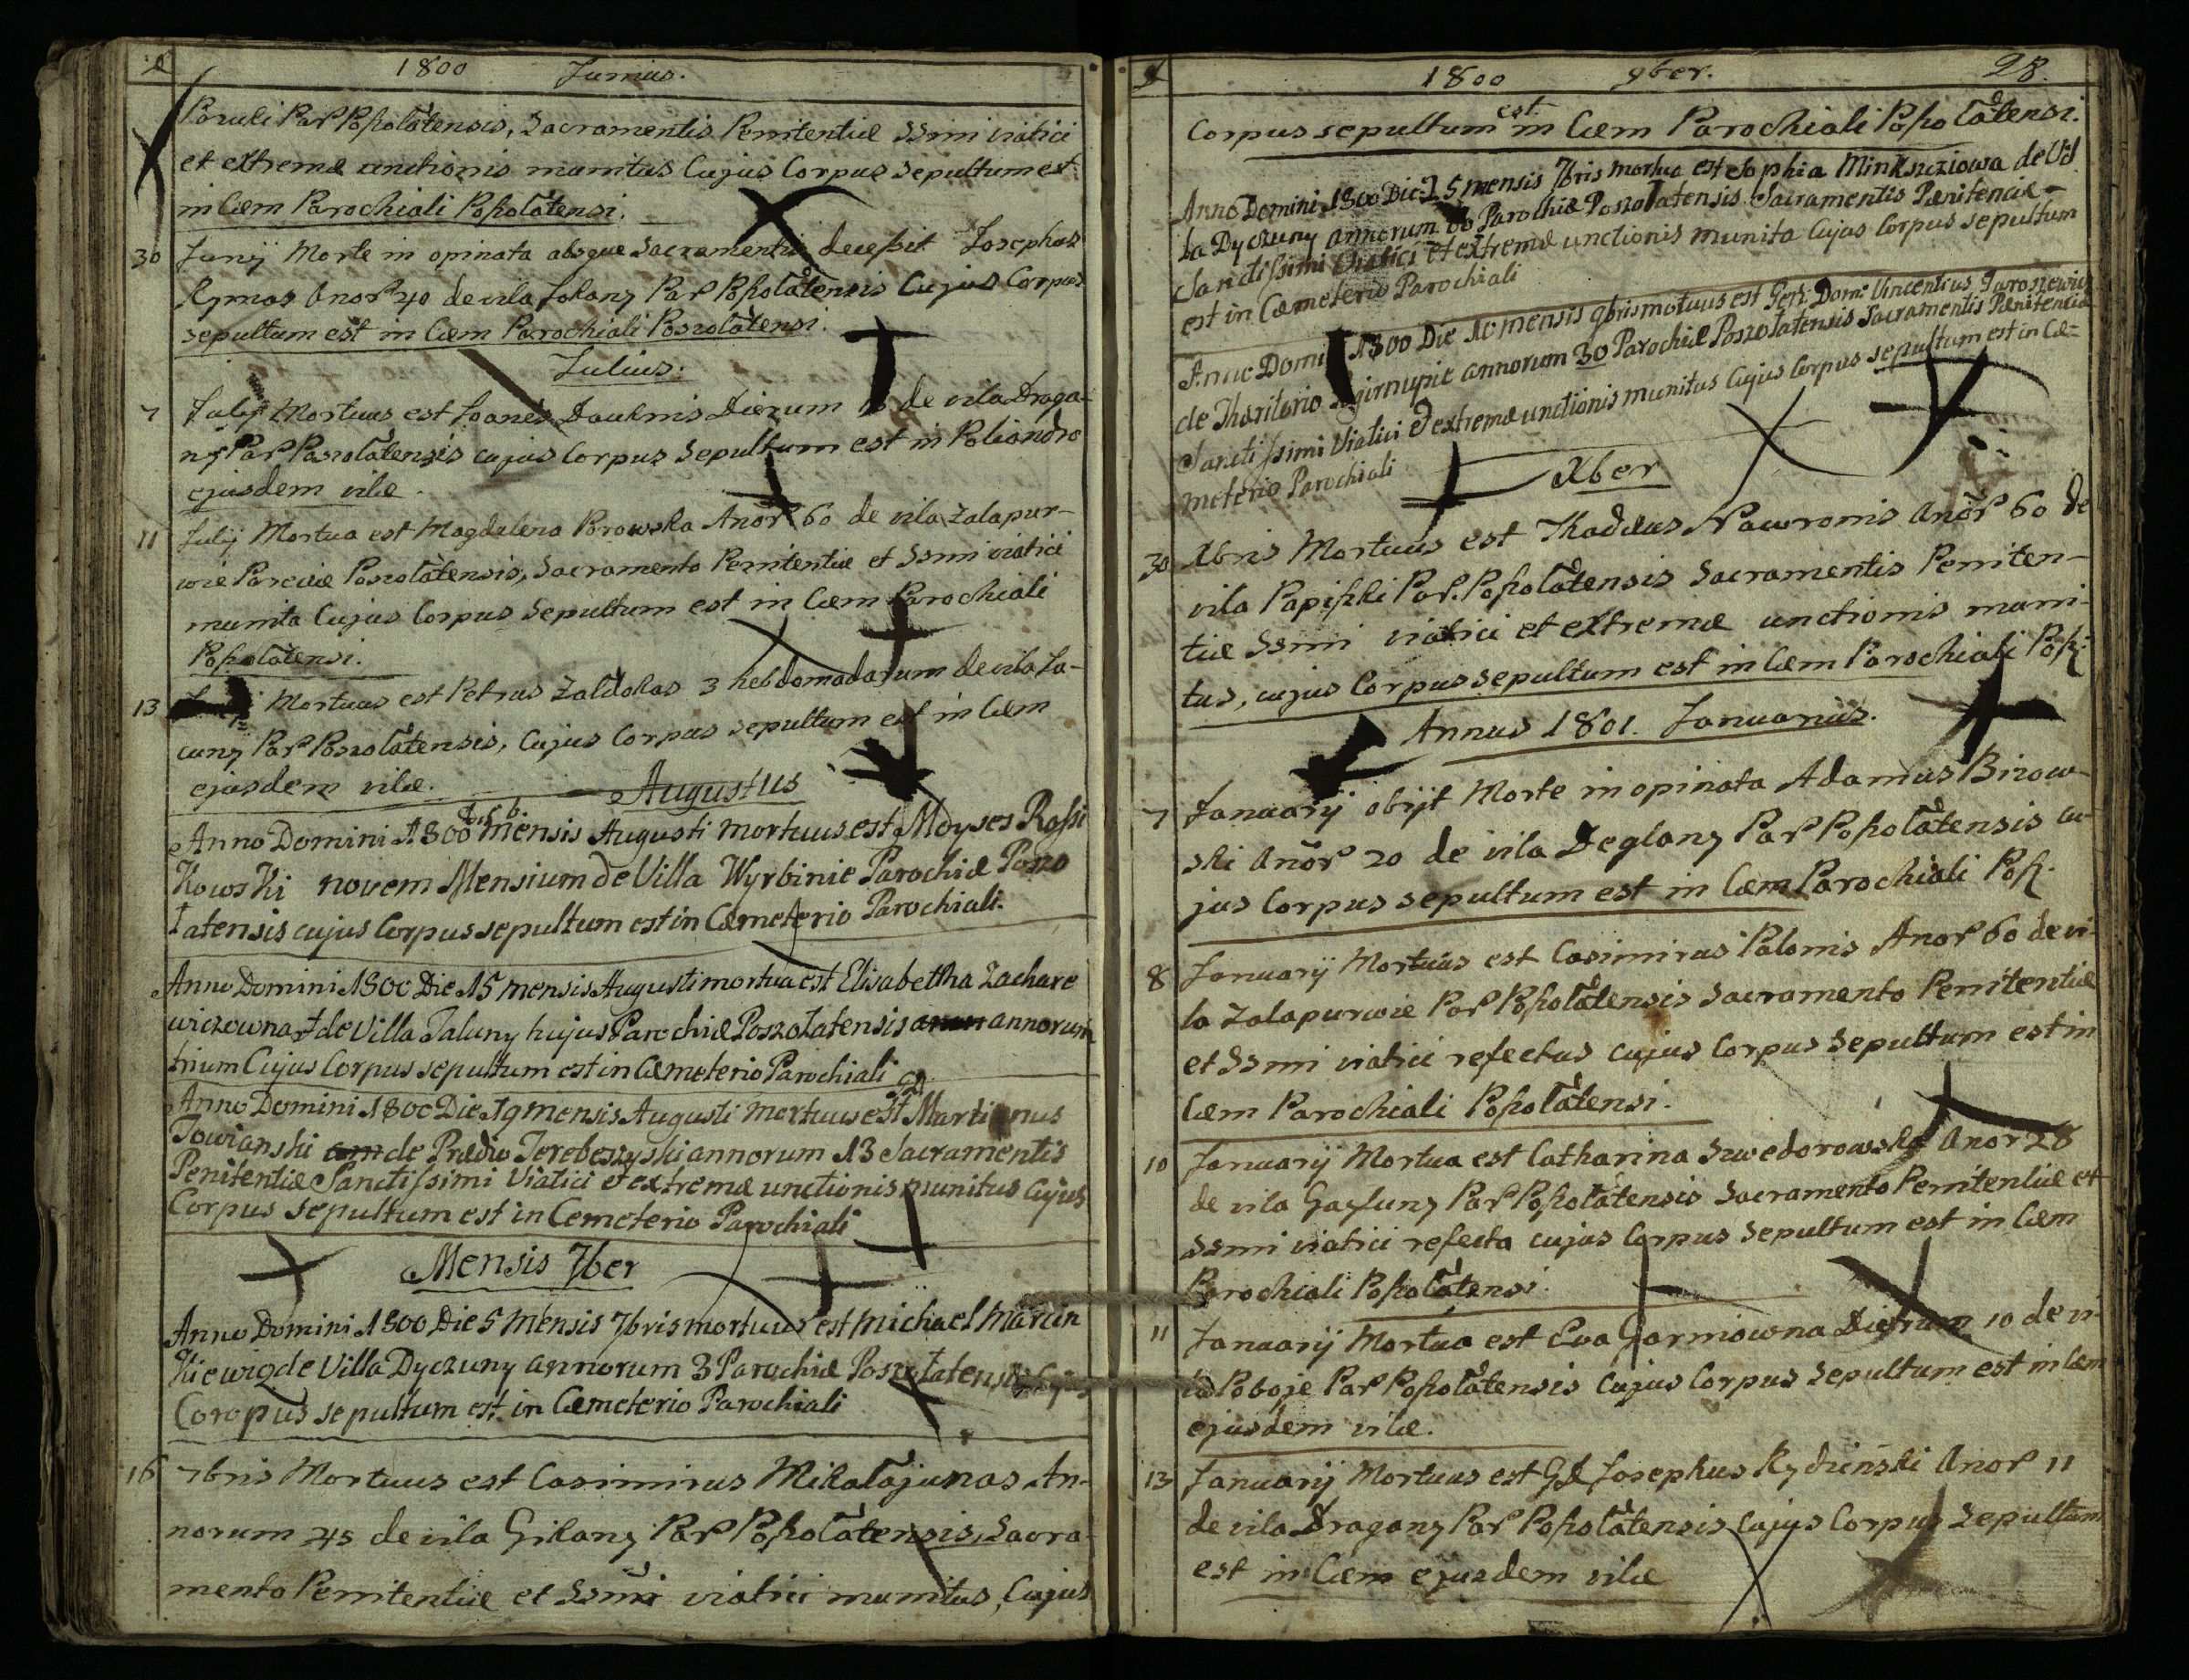 1800 Junius.
Pozuli Par Poszołatensis, Sacramentis Penitentiæ SSmi viatici
et extremæ unctionis munitus Cujus Corpus sepultum est
in Cæm Parochiali Poszołatensi.
30 Junÿ Morte in opinata absque Sacramentis decessit Josephas
Rymas Anor 40 de vila Jokany Par Poszołatensis Cujus Corpus
sepultum est in Cæm Parochiali Poszołatensi.
Julius.
7 Julÿ Mortuus est Joanes Dauknis Dierum de vila Draga-
ny Par Poszołatensis cujus Corpus Sepultum est in Poliandro
ejusdem vilæ.
11 Julÿ Mortua est Magdalena Porowska Anor 60 de vila Zalapur-
wie Parciæ Poszołatensis, Sacramento Penitentiæ et SSmi viatici
munita Cujus Corpus Sepultum est in Cæm Parochiali
Poszołatensi.
13 Mortuus est Petrus Zaldokas 3 hebdomadarum de vila Ja-
cuny Par Poszołatensis, Cujus Corpus sepultum est in Cæm
ejusdem vilæ.
Augustus
Anno Domini 1800 Die 6 mensis Augusti mortuus est Moyses Rossi
Kowski novem Mensium de Villa Wyrbinie Parochiæ Poszo
łatensis cujus Corpus sepultum est in Cæmeterio Parochiali.
Anno Domini 1800 Die 15 mensis Augusti mortua est Elisabettha Zachare
wiczowna de Villa Jaluny hujus Parochiæ Poszołatensis annorum
trium Cujus Corpus sepultum est in Cæmeterio Parochiali
Anno Domini 1800 Die 19 mensis Augusti mortuus est GD Martianus
Towianski de Prædio Jerebeszyski annorum 13 Sacramentis
Penitentiæ Sanctissimi Viatici et extremæ unctionis munitus Cujus
Corpus sepultum est in Cemeterio Parochiali
Mensis 7ber
Anno Domini 1800 Die 5 mensis 7bris mortuus est Michael Marcin
Kiewicz de Villa Dyczuny annorum 3 Parochiæ Poszołatensis Cujus
Coropus sepultum est in Cæmeterio Parochiali
16 7bris Mortuus est Casimirus Mikołajunas An-
norum 45 de vila Gikany Par Poszołatensis, Sacra-
mento Penitentiæ et SSmi viatici munitus, Cujus
1800 9ber. 28.
Corpus sepultum est in Cæm Parochiali Poszołatensi.
Anno Domini 1800 Die 25 mensis 7bris mortua est Sophia Minkszziowa de Vil
la Dyczuny annorum 60 Parochiæ Poszołatensis Sacramentis Pænitenciæ
Sanctissimi Viatici et extremæ unctionis munita Cujus Corpus sepultum
est in Cæmeterio Parochiali
Anno Domi 1800 Die 10 mensis 9bris motuus est Gen: Dom: Vincentius Jaroszewicz
de Tharitorio annorum 30 Parochiæ Poszołatensis Sacramentis Pænitenciæ
Sanctissimi Viatici et extremæ unctionis munitus Cujus Corpus sepultum est in Cæ=
meterio Parochiali
Xber
30 Xbris Mortuus est Thaddæus Nawronis Anor 60 de
vila Papiszki Par. Poszołatensis Sacramentis Peniten-
tiæ SSmi viatici et extremæ unctionis muni-
tus, cujus Corpus sepultum est in Cæm Parochiali Posz.
Annus 1801. Januarius.
7 Januarÿ obijt Morte in opinata Adamus Birow-
ski Anor 20 de vila Deglany Par Poszołatensis cu-
jus Corpus sepultum est in Cæm Parochiali Posz.
8 Januarÿ Mortuus est Casimirus Palonis Anor 60 de vi-
la Zalapurwie Par Poszołatensis Sacramento Penitentiæ
et SSmi viatici refectus cujus Corpus Sepultum est in
Cæm Parochiali Poszołatensi.
10 Januarÿ Mortua est Catharina Szwedorowska Anor 28
de vila Gayluny Par Poszołatensis Sacramento Penitentiæ et
SSmi viatici refecta cujus Corpus Sepultum est in Cæm
Parochiali Poszołatensi
11 Januarÿ Mortua est Eva Garniowna Dierum 10 de vi-
la Poboje Par Poszołatensis Cujus Corpus Sepultum est in Cæm
ejusdem vilæ.
13 Januarÿ Mortuus est GD Josephus Rydzieński Anor 11
de vila Dragany Par Poszołatensis Cujus Corpus Sepultum
est in Cæm ejusdem vilæ